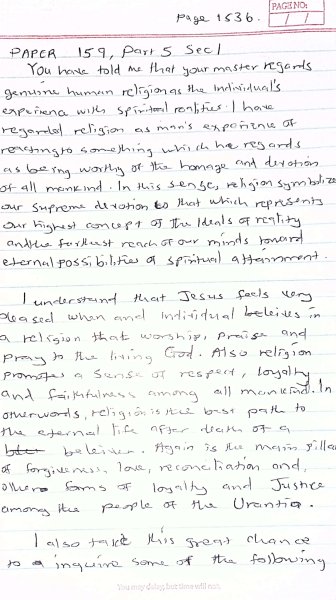 Page 1536.
PAGE NO:
/ /
PAPER 159, Part 5 Sec 1
You have told me that your master regards
genuine human religion as the individual's
experience with spiritual realities. I have
regarded religion as man's experience of
reacting to something which he regards
as being worthy of the homage and devotion
of all mankind. In this sense, religion symbolize
our Supreme devotion to that which represents
our highest concept of the Ideals of reality
and the farthest reach of our minds toward
eternal possibilities of spiritual attainment.
I understand that Jesus feels very
pleased when and individual beleives in
a religion that worship, praise and
pray to the living God. Also religion
promotes a sense of respect, loyalty
and faithfulness among all mankind. In
otherwords, religion is the best path to
the eternal life after death of a
beleiver. Again is the main pillar
of forgiveness, love, reconciliation and,
others forms of loyalty and Justice
among the people of the Urantia.
I also take this great chance
to a inquire some of the following
You may delay, but time will not.